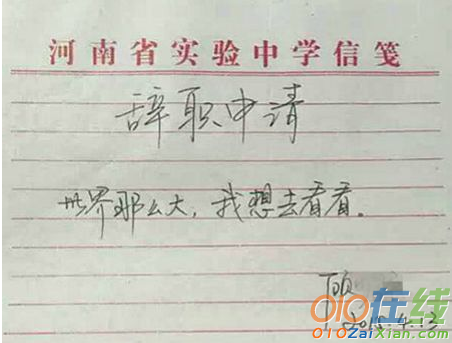 河南省实验中学信笺
辞职申请
世界那么大，我想去看看。
2015.4.13
010在线
010zaixian.com